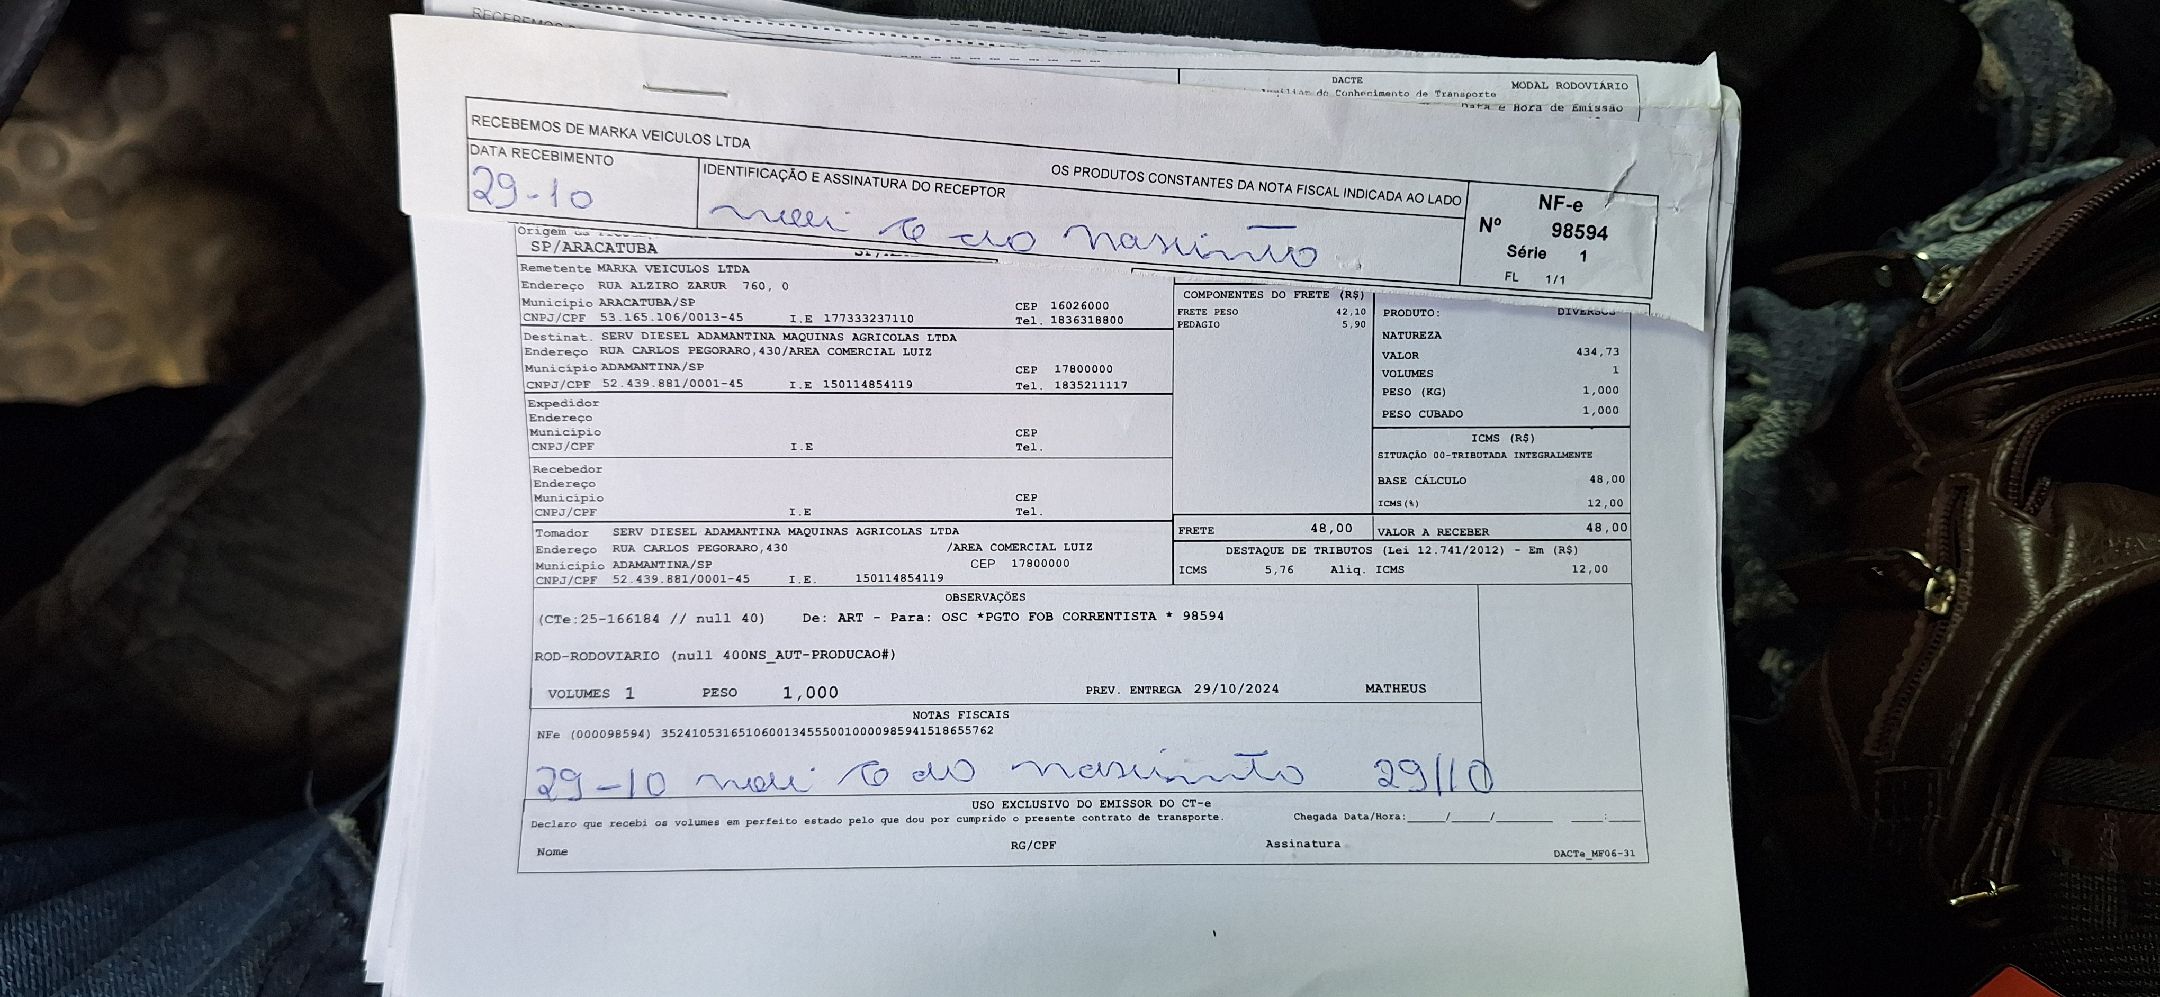 DACTE
MODAL RODOVIÁRIO
Conhecimento de Transporte
e Hora de Emissão
RECEBEMOS DE MARKA VEICULOS LTDA
OS PRODUTOS CONSTANTES DA NOTA FISCAL INDICADA AO LADO
DATA RECEBIMENTO
29-10
IDENTIFICAÇÃO E ASSINATURA DO RECEPTOR
do nascimto
NF-e
Nº 98594
Série 1
FL 1/1
Origem
SP/ARACATUBA
Remetente MARKA VEICULOS LTDA
Endereço RUA ALZIRO ZARUR 760, 0
Município ARACATUBA/SP CEP 16026000
CNPJ/CPF 53.165.106/0013-45 I.E 177333237110 Tel. 1836318800
Destinat. SERV DIESEL ADAMANTINA MAQUINAS AGRICOLAS LTDA
Endereço RUA CARLOS PEGORARO,430/AREA COMERCIAL LUIZ
Município ADAMANTINA/SP CEP 17800000
CNPJ/CPF 52.439.881/0001-45 I.E 150114854119 Tel. 1835211117
Expedidor
Endereço
Município CEP
CNPJ/CPF I.E Tel.
Recebedor
Endereço
Município CEP
CNPJ/CPF I.E Tel.
Tomador SERV DIESEL ADAMANTINA MAQUINAS AGRICOLAS LTDA
Endereço RUA CARLOS PEGORARO,430 /AREA COMERCIAL LUIZ
Município ADAMANTINA/SP CEP 17800000
CNPJ/CPF 52.439.881/0001-45 I.E. 150114854119
COMPONENTES DO FRETE (R$)
FRETE PESO 42,10
PEDAGIO 5,90
PRODUTO: DIVERSOS
NATUREZA
VALOR 434,73
VOLUMES 1
PESO (KG) 1,000
PESO CUBADO 1,000
ICMS (R$)
SITUAÇÃO 00-TRIBUTADA INTEGRALMENTE
BASE CÁLCULO 48,00
ICMS(%) 12,00
FRETE 48,00 VALOR A RECEBER 48,00
DESTAQUE DE TRIBUTOS (Lei 12.741/2012) - Em (R$)
ICMS 5,76 Aliq. ICMS 12,00
OBSERVAÇÕES
(CTe:25-166184 // null 40) De: ART - Para: OSC *PGTO FOB CORRENTISTA * 98594
ROD-RODOVIARIO (null 400NS_AUT-PRODUCAO#)
VOLUMES 1 PESO 1,000 PREV. ENTREGA 29/10/2024 MATHEUS
NOTAS FISCAIS
NFe (000098594) 35241053165106001345550010000985941518655762
29-10 do nascimto 29/10
USO EXCLUSIVO DO EMISSOR DO CT-e
Declaro que recebi os volumes em perfeito estado pelo que dou por cumprido o presente contrato de transporte. Chegada Data/Hora:____/____/______ ____:____
Nome RG/CPF Assinatura
DACTe_MF06-31